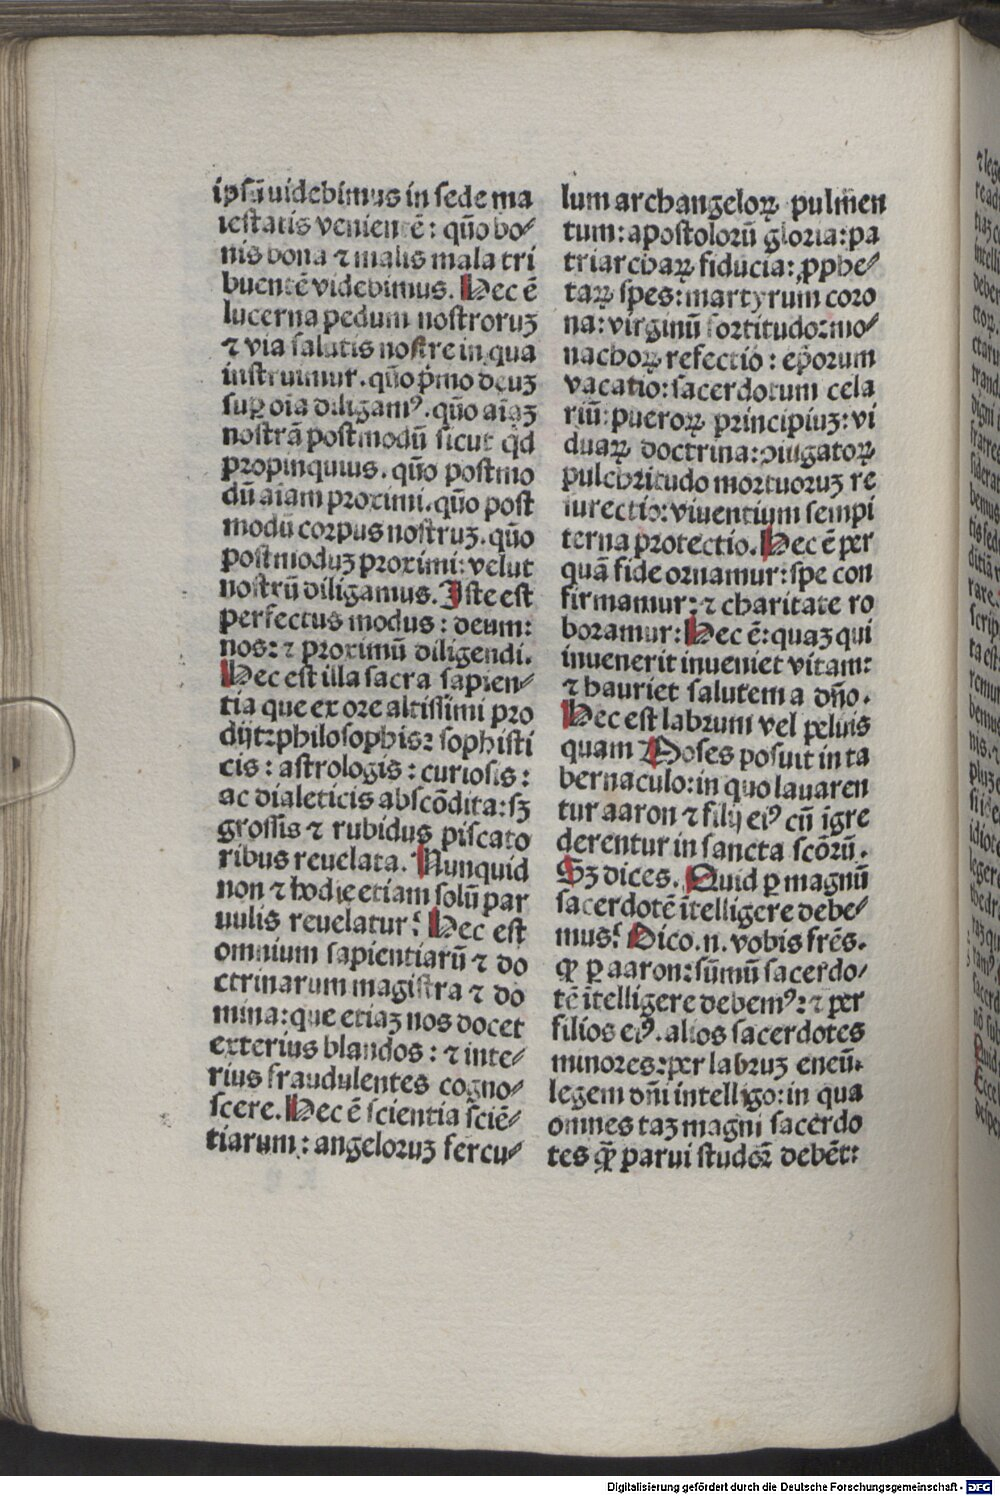 ipsã uidebimus in sede ma
iestatis venientẽ: quõ bo⸗
nis bona ⁊ malis mala tri
buentẽ videbimus. Hec ẽ
lucerna pedum nostroruꝫ
⁊ via salutis nostre in qua
instruimur. quõ p̃mo deuꝫ
suꝑ oĩa diligamꝰ. quõ aĩaꝫ
nostrã postmodũ sicut q̃d
propinquius. quõ postmo
dũ aĩam proximi. quõ post
modũ corpus nostruꝫ. quõ
postmoduꝫ proximi: velut
nostrũ diligamus. Iste est
perfectus modus: deum:
nos: ⁊ proximũ diligendi.
Hec est illa sacra sapien⸗
tia que ex ore altissimi pro
dijt: philosophis: sophisti
cis: astrologis: curiosis:
ac dialeticis abscõdita: sꝫ
grossis ⁊ rubidus piscato
ribus reuelata. Nunquid
non ⁊ hodie etiam solũ par
uulis reuelatur? Hec est
omnium sapientiarũ ⁊ do
ctrinarum magistra ⁊ do
mina: que etiaꝫ nos docet
exterius blandos: ⁊ inte⸗
rius fraudulentes cogno⸗
scere. Hec ẽ scientia sciẽ⸗
tiarum: angeloruꝫ fercu⸗
lum archangeloꝝ pulmen
tum: apostolorũ gloria: pa
triarchaꝝ fiducia: ꝓphe⸗
taꝝ spes: martyrum coro
na: virginũ fortitudo: mo⸗
nachoꝝ refectio: ep̃orum
vacatio: sacerdotum cela
riũ: pueroꝝ principiuꝫ: vi
duaꝝ doctrina: ꝯiugatoꝝ
pulchritudo mortuoruꝫ re
surectio: viuentium sempi
terna protectio. Hec ẽ per
quã fide ornamur: spe con
firmamur: ⁊ charitate ro
boramur: Hec ẽ: quaꝫ qui
inuenerit inueniet vitam:
⁊ hauriet salutem a dño.
Hec est labrum vel peluis
quam Moses posuit in ta
bernaculo: in quo lauaren
tur aaron ⁊ filij eiꝰ cũ ĩgre
derentur in sancta scõrũ.
Sꝫ dices. Quid ꝑ magnũ
sacerdotẽ ĩtelligere debe⸗
mus? Dico .n. vobis frẽs.
ꝙ ꝑ aaron: sũmũ sacerdo⸗
tẽ ĩtelligere debemꝰ: ⁊ per
filios eiꝰ. alios sacerdotes
minores: per labruꝫ eneũ.
legem dñi intelligo: in qua
omnes taꝫ magni sacerdo
tes ꝙ̃ parui studer̃ debẽt:
Digitalisierung gefördert durch die Deutsche Forschungsgemeinschaft - DFG